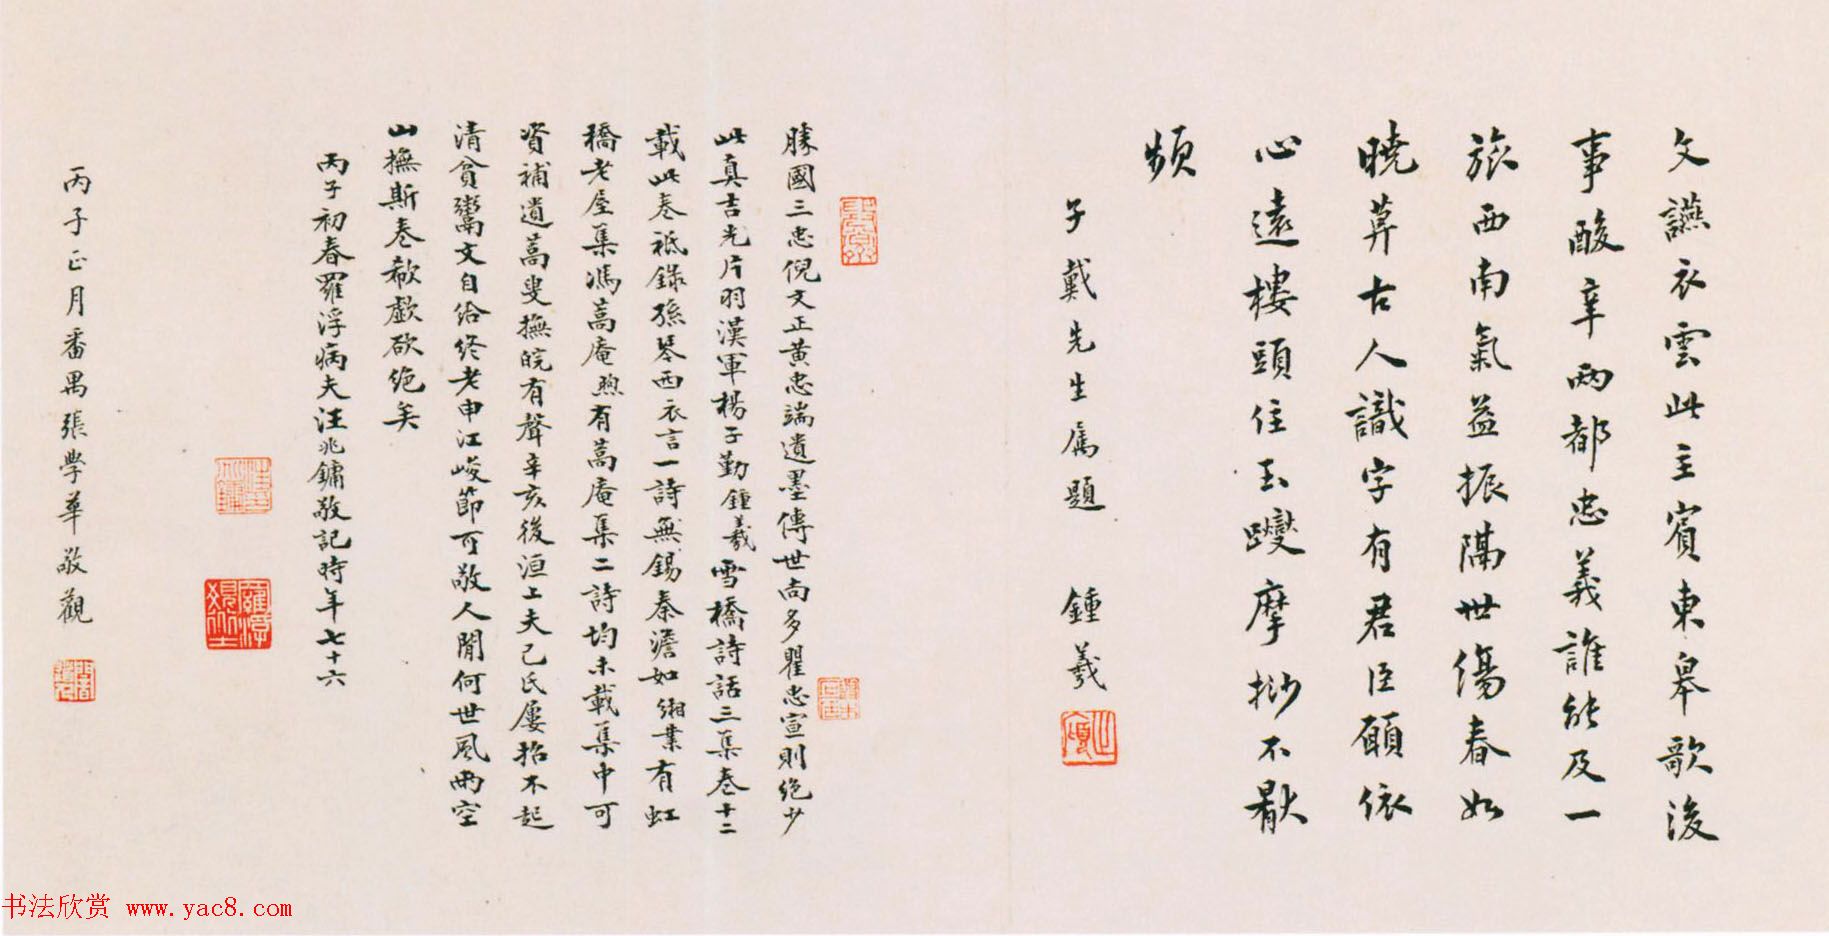 文讌衣雲此主賓東皋歌後
事酸辛兩都忠義誰能及一
旅西南氣益振隔世傷春如
曉夢古人識字有君臣願依
心遠樓頭住玉躞摩挱不厭
頻
子戴先生屬題 鍾羲
勝國三忠倪文正黃忠端遺墨傳世尚多瞿忠宣則絕少
此真吉光片羽漢軍楊子勤鍾羲雪橋詩話三集卷十二
載此卷祗錄孫琴西衣言一詩無錫秦澹如緗業有虹
橋老屋集馮蒿庵煦有蒿庵集二詩均未載集中可
資補遺蒿叟撫皖有聲辛亥後洹上夫己氏屢招不起
清貧鬻文自給終老申江峻節可敬人間何世風雨空
山撫斯卷欷歔欲絕矣
丙子初春羅浮病夫汪兆鏞敬記時年七十六
丙子正月番禺張學華敬觀
书法欣赏 www.yac8.com